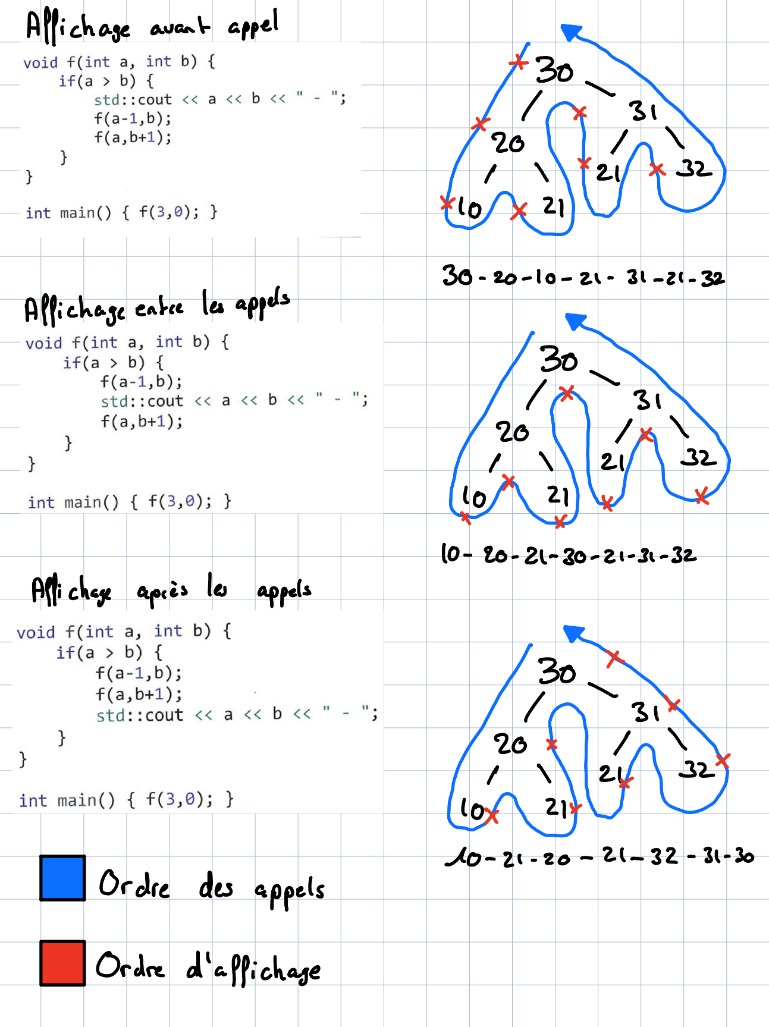 Affichage avant appel
void f(int a, int b) {
if(a > b) {
std::cout << a << b << " - ";
f(a-1,b);
f(a,b+1);
}
}
int main() { f(3,0); }
30
31
20
21
32
10
21
30-20-10-21-31-21-32
Affichage entre les appels
void f(int a, int b) {
if(a > b) {
f(a-1,b);
std::cout << a << b << " - ";
f(a,b+1);
}
}
int main() { f(3,0); }
30
31
20
21
32
10
21
10-20-21-30-21-31-32
Affichage après les appels
void f(int a, int b) {
if(a > b) {
f(a-1,b);
f(a,b+1);
std::cout << a << b << " - ";
}
}
int main() { f(3,0); }
30
31
20
21
32
10
21
10-21-20-21-32-31-30
Ordre des appels
Ordre d'affichage